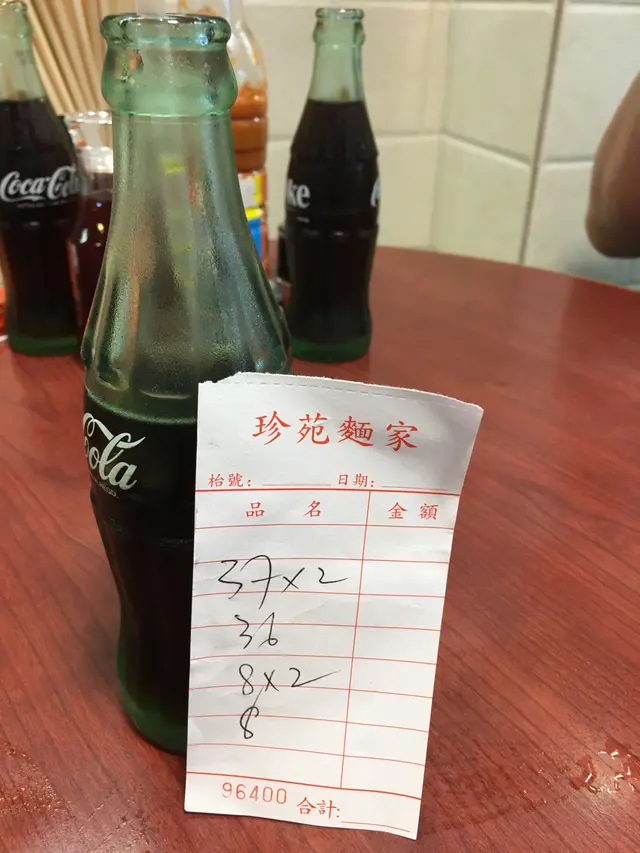 Coca-Cola
ke
Cola
珍苑麵家
枱號: 日期:
品 名 金額
37×2
36
8×2
8
96400 合計: